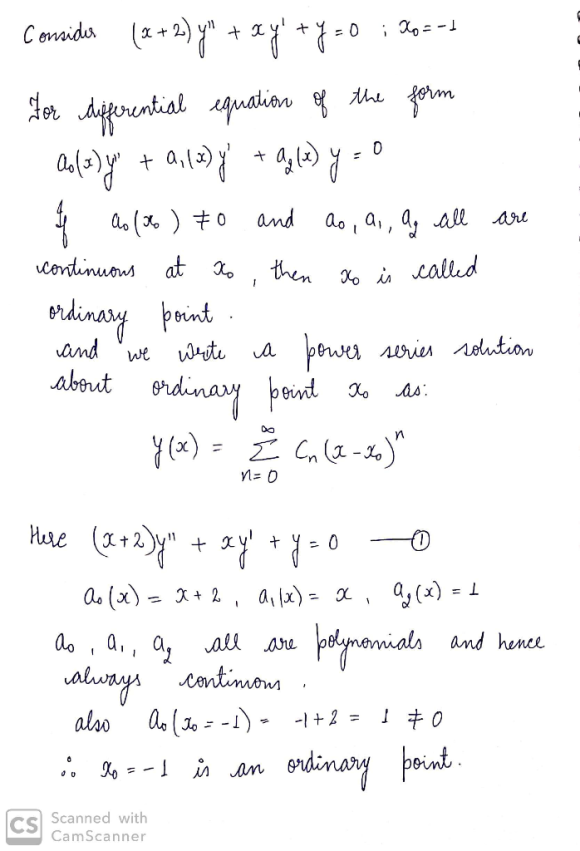 Consider (x+2) y" + x y' + y = 0 ; x₀ = -1
For differential equation of the form
a₀(x) y" + a₁(x) y' + a₂(x) y = 0
If a₀(x₀) ≠ 0 and a₀, a₁, a₂ all are
continuous at x₀, then x₀ is called
ordinary point.
and we write a power series solution
about ordinary point x₀ as:
y(x) = ∞ Σ n=0 Cₙ (x-x₀)ⁿ
Here (x+2)y" + xy' + y = 0 —①
a₀(x) = x+2, a₁(x) = x, a₂(x) = 1
a₀, a₁, a₂ all are polynomials and hence
always continuous.
also a₀(x₀ = -1) = -1+2 = 1 ≠ 0
∴ x₀ = -1 is an ordinary point.
CS Scanned with
CamScanner